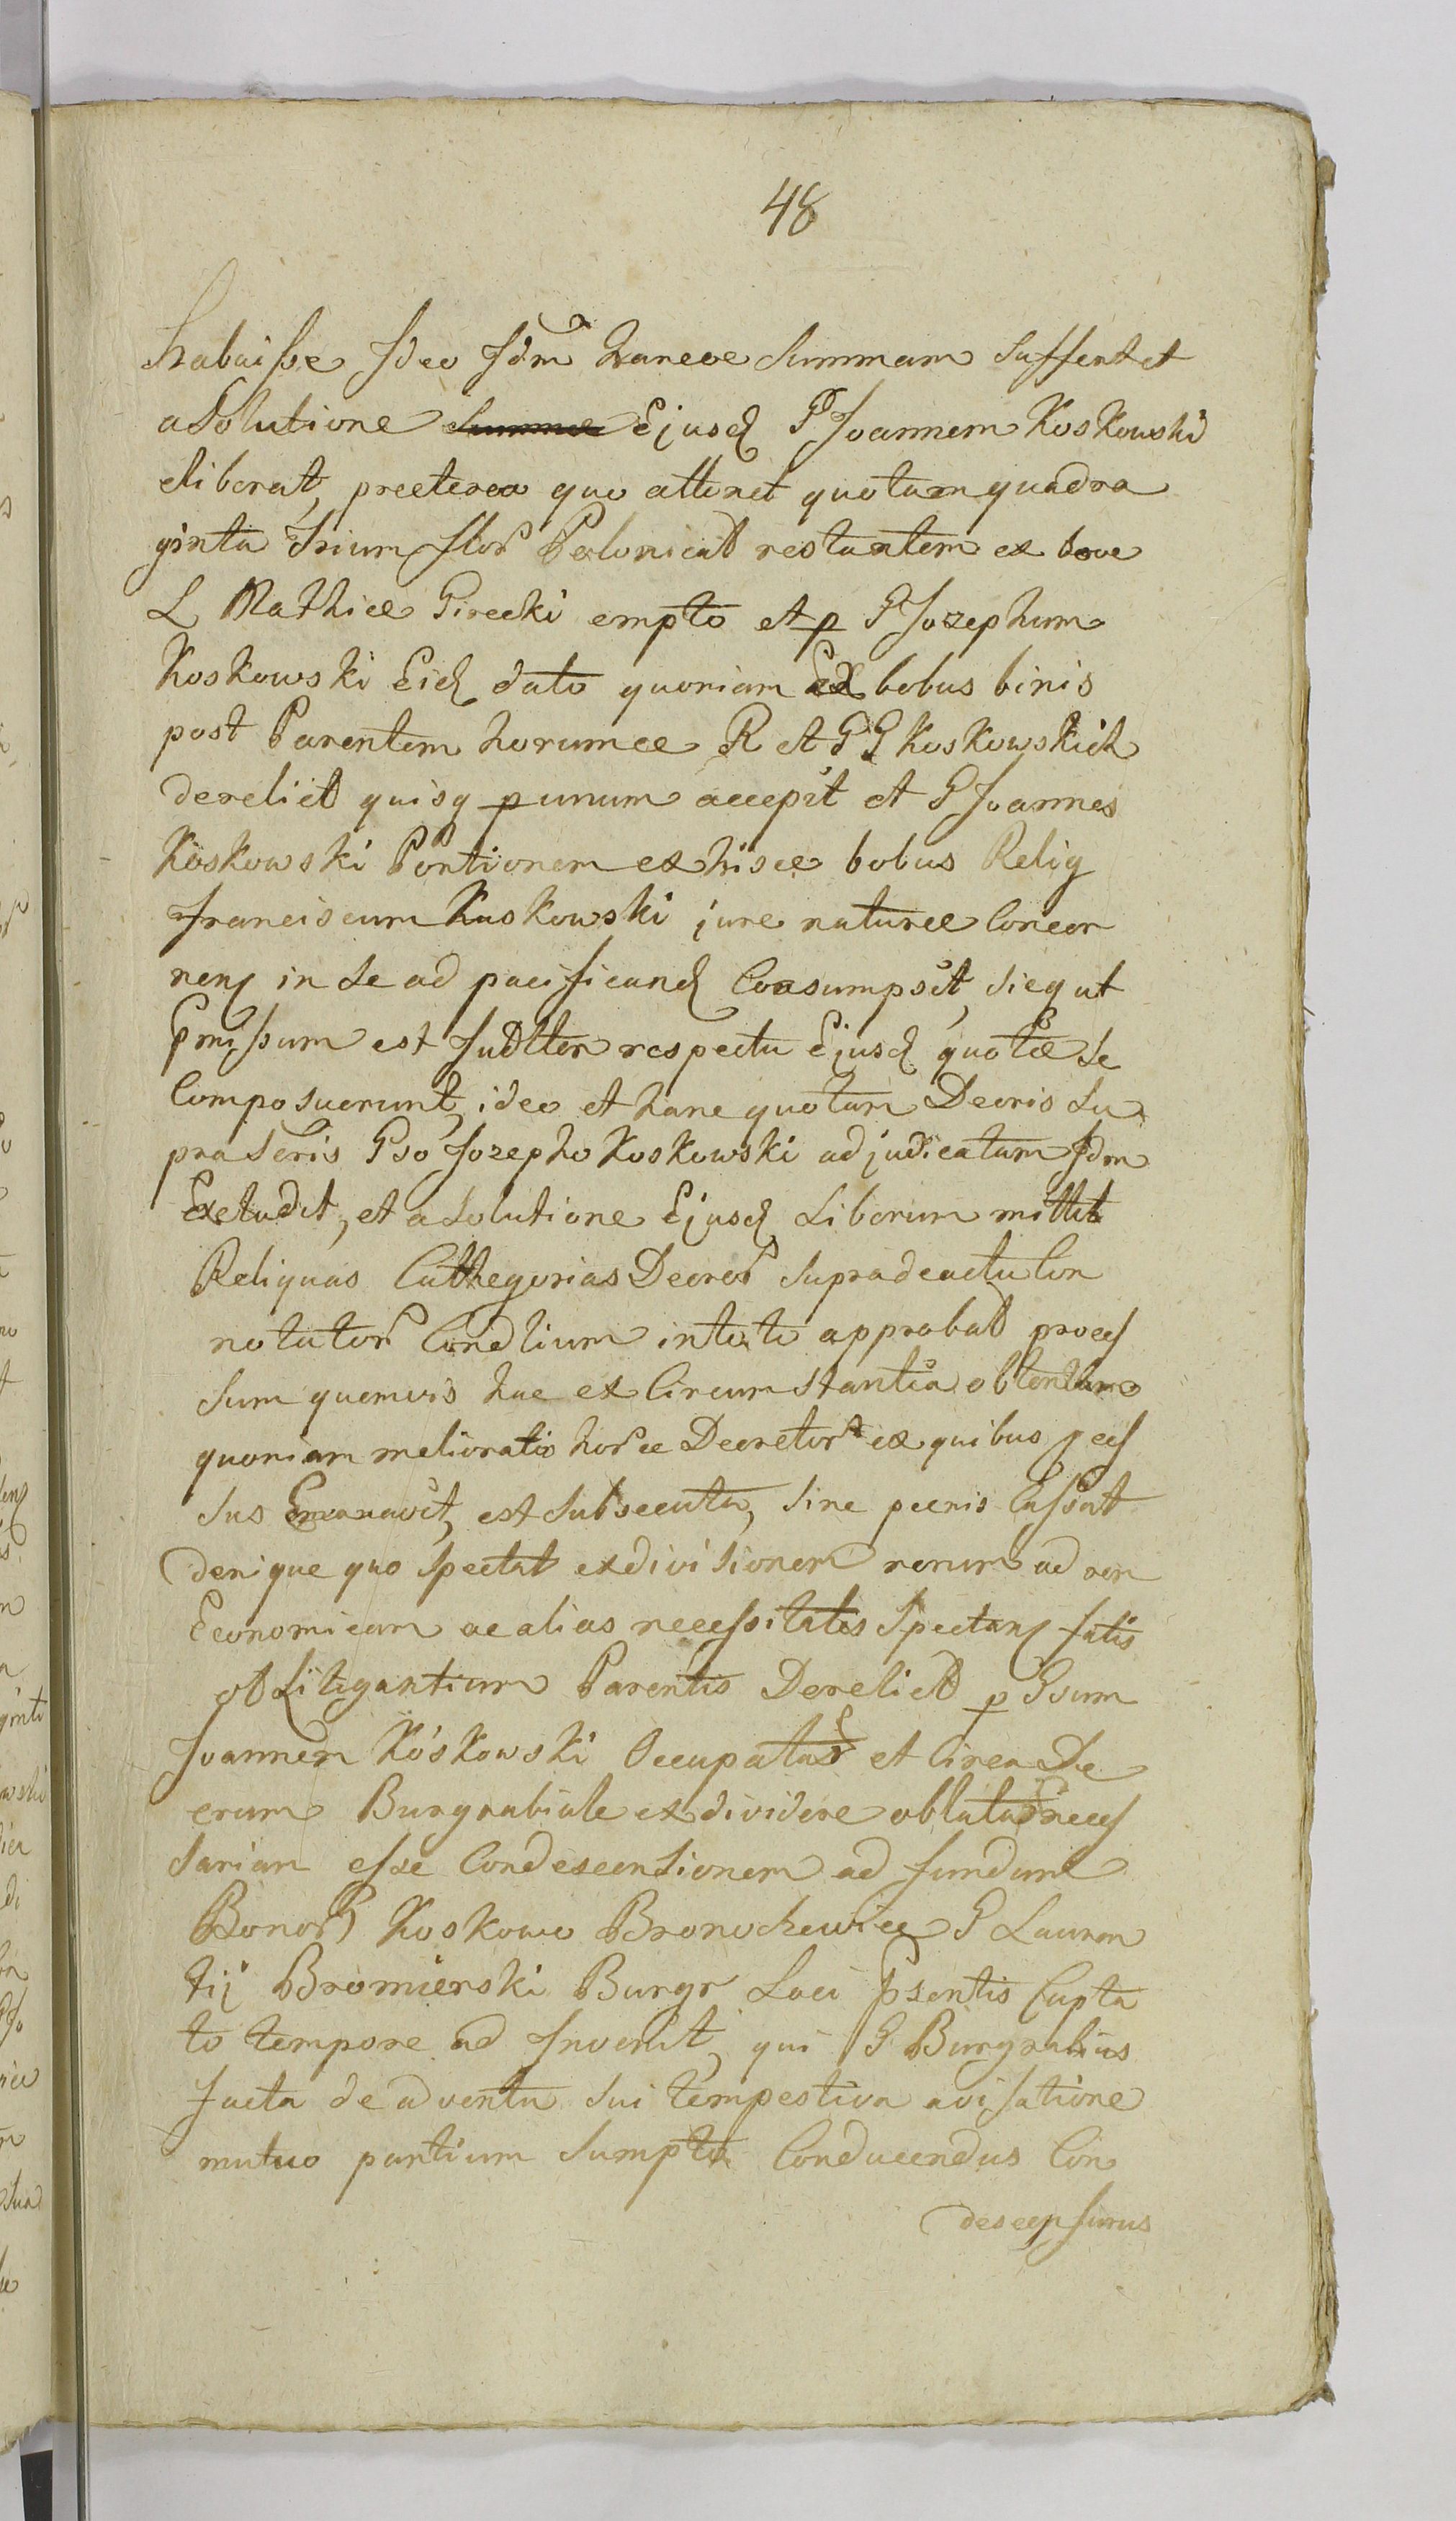 48
Habuisse Ideo Idm hancce Summam suffert et
a Solutione Summae Ejusd G Joannem Koskowski
eliberat, praeterea quo attinet quotam quadra
ginta trium flor Polonical restantem ex bove
L Mathiae Girecki empto et p G Jozephum
Koskowski Eid dato quoniam Ex bobus binis
post Parentem horumce R et GG Koskowskich
derelict quisq p unum accepit et G Joannes
Koskowski Portionem ex hisce bobus Relig
Franciscum Koskowski jure naturae Concer
nen in se ad pacificand Coasumpsit, sicq ut
Pmissum est Judlter respectu Ejusd quotae se
Composuerunt, ideo et hanc quotam Decris Su
prascris Gso Jozepho Koskowski adjudicatam Idm
Excludit, et a Solutione Ejusd Liberum mittit
Reliquas Cathegorias Decret supra de actu Con
notator Condlium in toto approbat proces
sum quemvis hac ex Circumstantia obtentum
quoniam melioratio horce Decretor ex quibus pces
sus Emanavit, est subsecuta, sine poenis Cassat
denique quo Spectat exdivisionem rerum ad rem
Economicam ac alias necessitates Spectan fatis
ol Litigantium Parentis Derelict p Gsum
Joannem Koskowski Occupatas et Circa De
crum Burgrabiale exdividere oblatas neces
sariam esse Condescensionem ad fundum
Bonor Koskowo Bronochewice G Lauren
tij Bromierski Burgr Loci Psentis Capta
to tempore ad Invenit, qui G Burgrabius
facta de adventu sui tempestiva avisatione
mutuo partium Sumptu Conducendus Con
descensurus